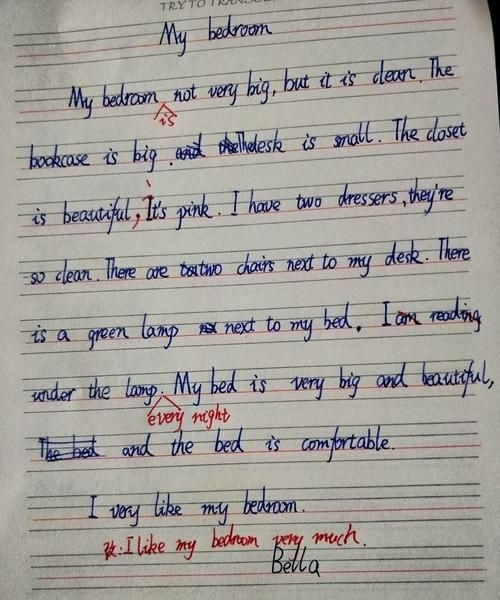 TRY TO TRANSCE
My bedroom
My bedroom not very big, but it is clean. The
is
bookcase is big. and the The desk is small. The closet
is beautiful, It's pink. I have two dressers, they're
so clean. There are two chairs next to my desk. There
is a green lamp next to my bed. I am reading
under the lamp. My bed is very big and beautiful,
every night
The bed and the bed is comfortable.
I very like my bedroom.
改: I like my bedroom very much.
Bella